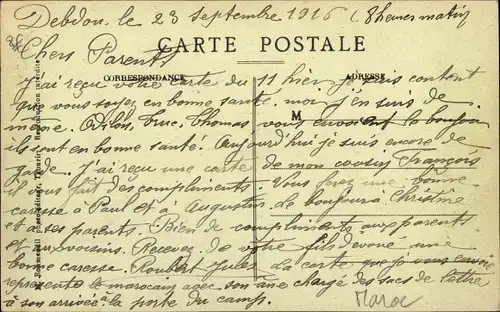 Debdou. le 23 septembre 1916 (8 heures matin)
Chers Parents
CARTE POSTALE
CORRESPONDANCE
ADRESSE
J'ai reçu votre carte du 11 hier. Je suis content
que vous soyez en bonne santé. moi j'en suis de
M
même. Truc, Thomas, vous envoient le bonjour
ils sont en bonne santé. Aujourd'hui je suis encore de
garde. J'ai reçu une carte de mon cousin François
il vous fait des compliments. Vous ferez une bonne
caresse à Paul et à Augusta. de bonjour à Christine
et à ses parents. Bien de compliments aux parents
et aux voisins. Recevez de votre fils dévoué une
bonne caresse. Roubert Jules. La carte que je vous envoie
représente le marocain avec son âne chargé des sacs de lettre
à son arrivée à la porte du camp.
Maroc